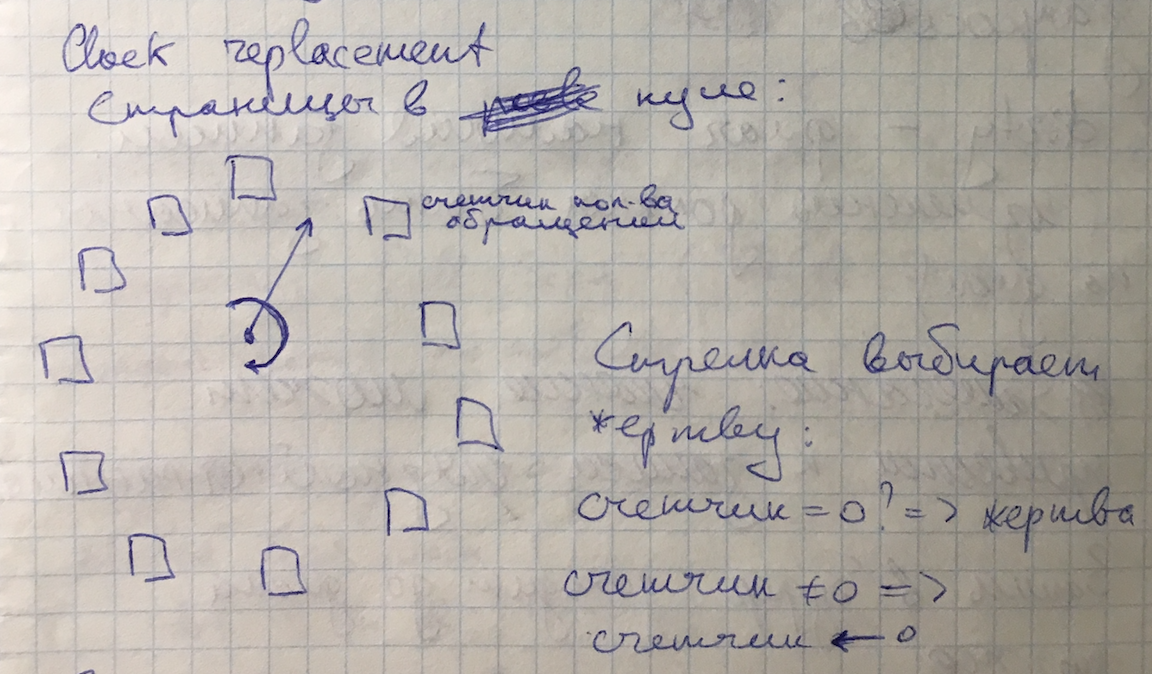 Clock replacement
Страницы в пуле:
счетчик кол-ва
обращений
Стрелка выбирает
жертву:
счетчик = 0? => жертва
счетчик ≠ 0 =>
счетчик ← 0